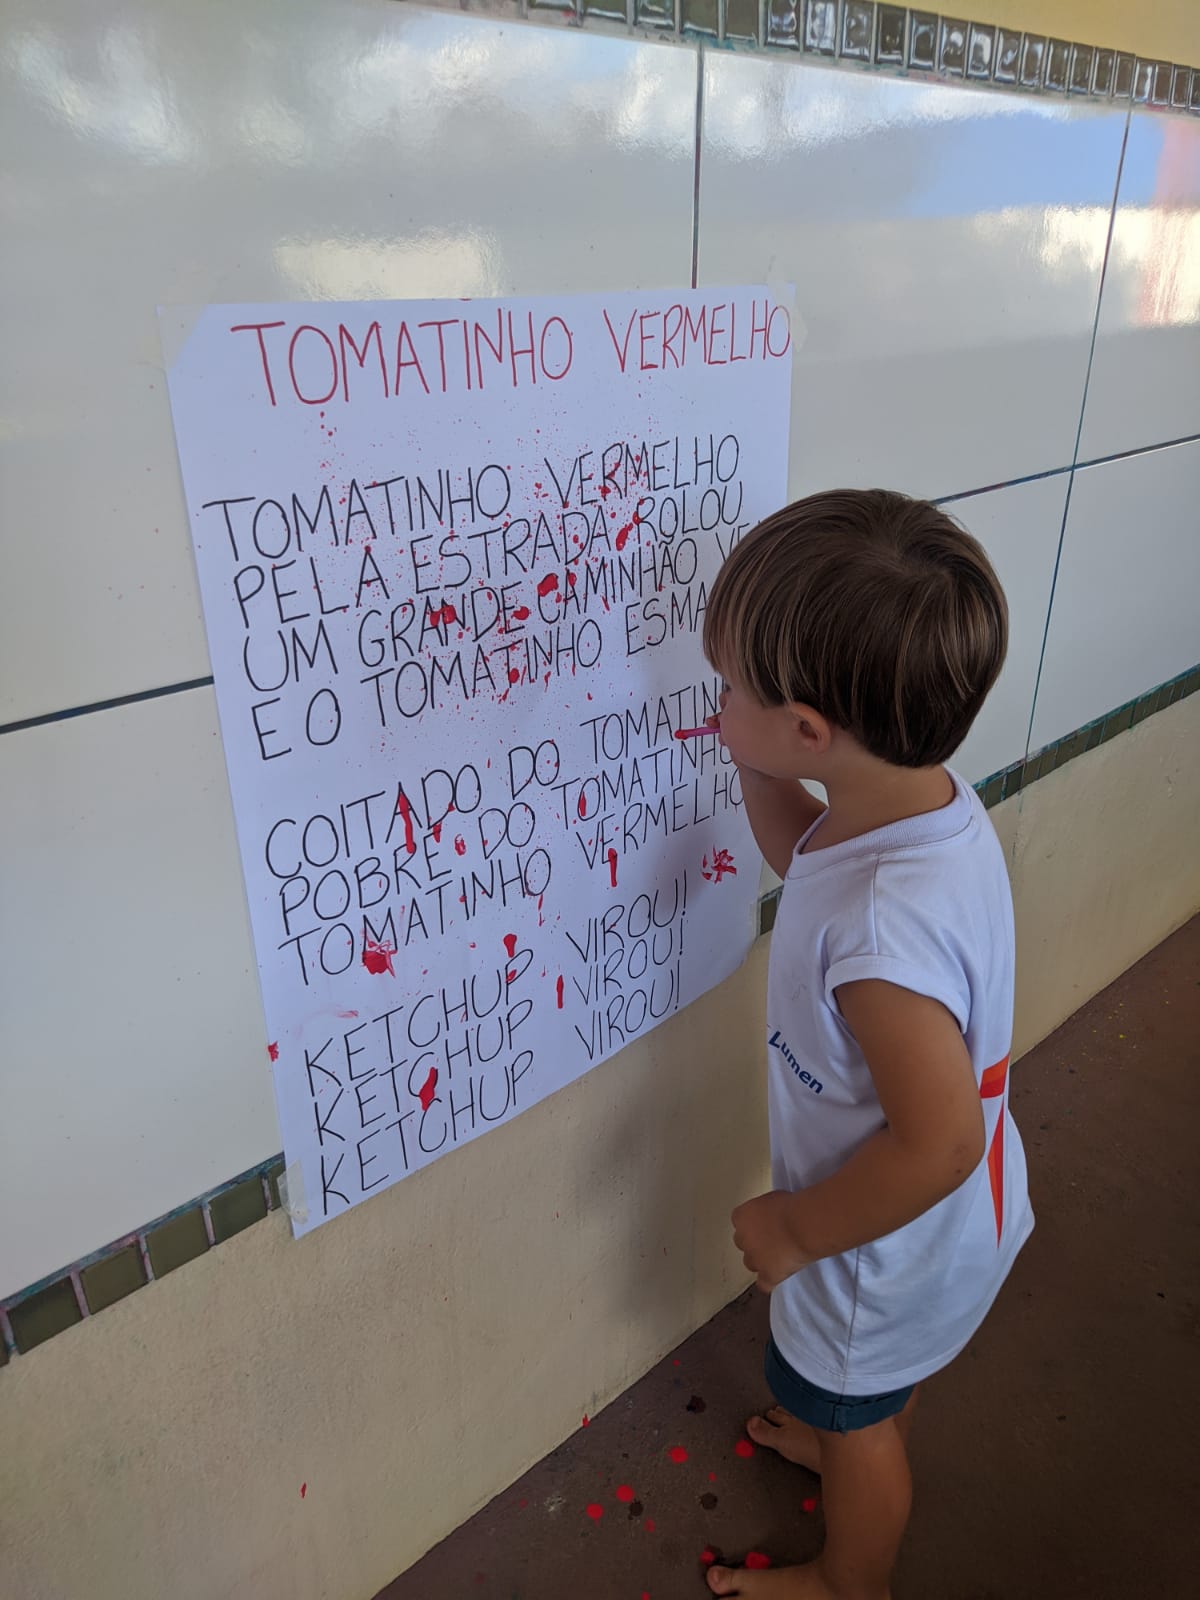 TOMATINHO VERMELHO
TOMATINHO VERMELHO
PELA ESTRADA ROLOU
UM GRANDE CAMINHÃO
E O TOMATINHO
COITADO DO
POBRE DO TOMATINHO
TOMATINHO VERMELHO
KETCHUP VIROU!
KETCHUP VIROU!
KETCHUP VIROU!
Lumen